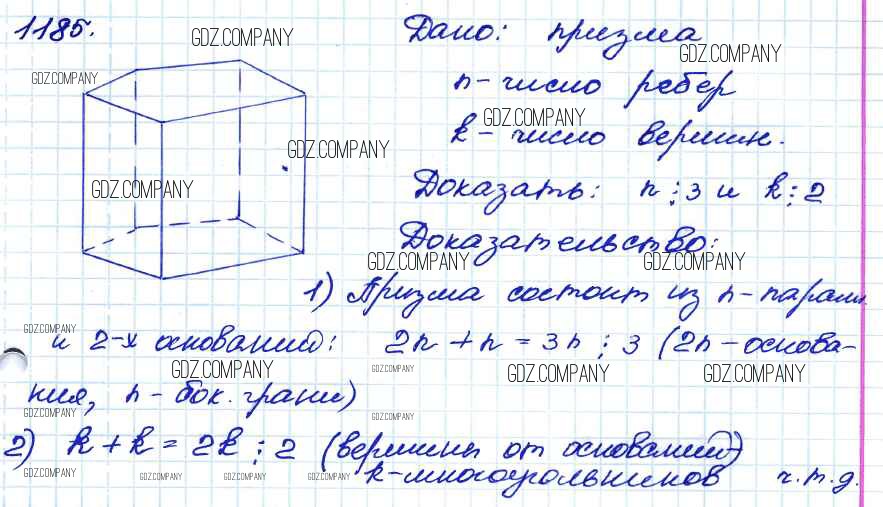 1185.
GDZ.COMPANY
Дано: призма
GDZ.COMPANY
GDZ.COMPANY
n - число ребер
GDZ.COMPANY
k - число вершин.
GDZ.COMPANY
GDZ.COMPANY
Доказать: n ⋮ 3 и k ⋮ 2
Доказательство:
GDZ.COMPANY
GDZ.COMPANY
1) Призма состоит из n-парал.
GDZ.COMPANY
и 2-х оснований: 2n + n = 3n ⋮ 3 (2n - основа-
GDZ.COMPANY
GDZ.COMPANY
GDZ.COMPANY
GDZ.COMPANY
ния, n - бок. грани)
GDZ.COMPANY
GDZ.COMPANY
2) k + k = 2k ⋮ 2 (вершины от оснований)
k-многоугольников ч.т.д.
GDZ.COMPANY
GDZ.COMPANY
GDZ.COMPANY
GDZ.COMPANY
GDZ.COMPANY
GDZ.COMPANY